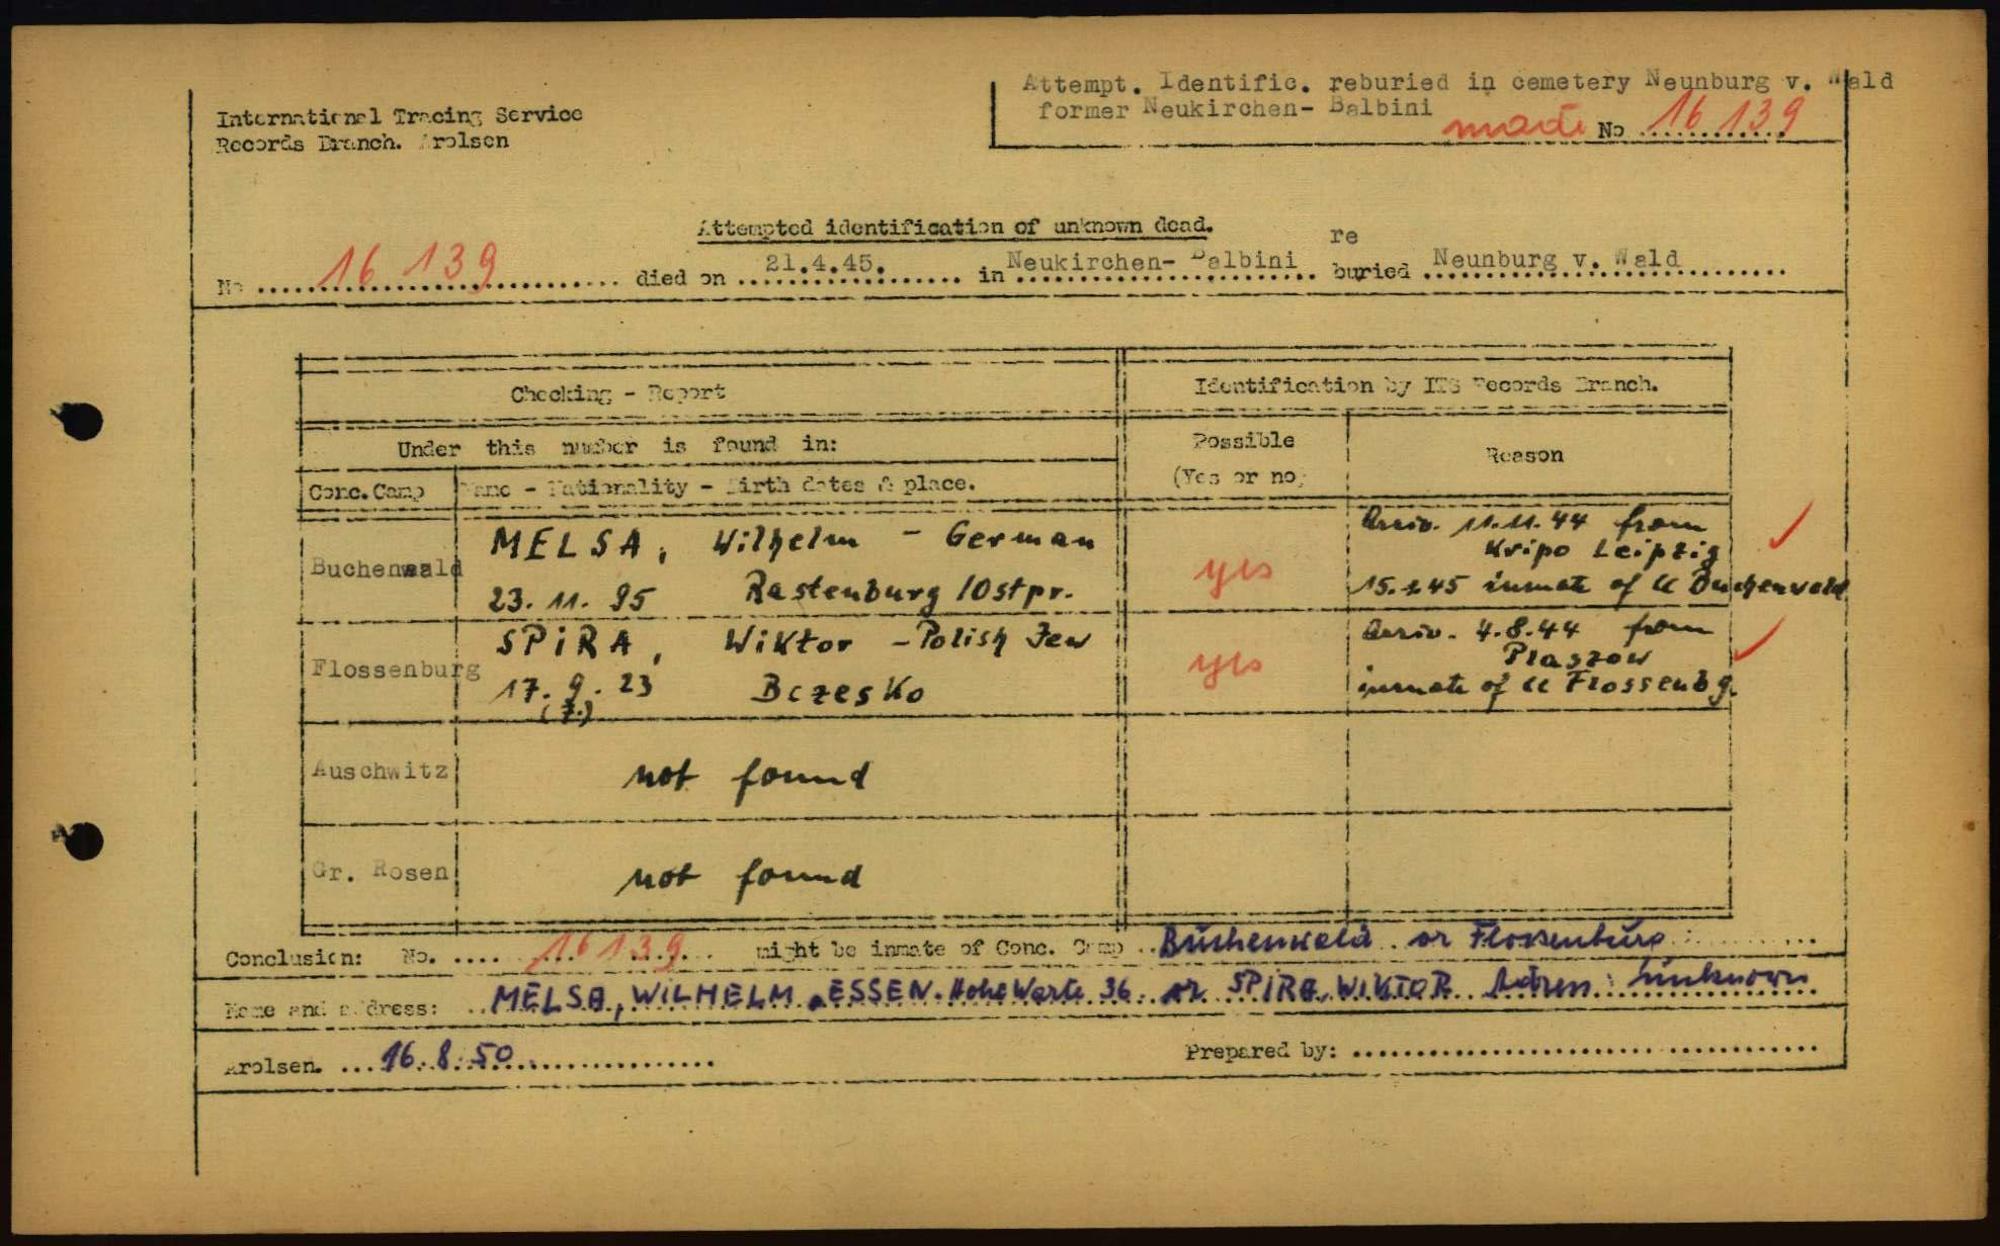 Attempt. Identific. reburied in cemetery Neunburg v. Wald
former Neukirchen- Balbini
made No 16 139
International Tracing Service
Records Branch. Arolsen
Attempted identification of unknown dead.
No 16 139 died on 21.4.45. in Neukirchen- Balbini re buried Neunburg v. Wald
Checking - Report
Identification by ITS Records Branch.
Under this number is found in:
Possible
(Yes or no)
Reason
Conc. Camp
Name - Nationality - Birth dates & place.
Buchenwald
MELSA, Wilhelm - German
23. 11. 95 Rastenburg /Ostpr.
yes
Arriv. 11.11.44 from
Kripo Leipzig
inmate of CC Buchenwald
Flossenburg
SPiRA, Wiktor - Polish Jew
17. 9. 23 Bczesko
(7.)
yes
Arriv. 4.8.44 from
Plaszow
inmate of CC Flossenbg.
Auschwitz
not found
Gr. Rosen
not found
Conclusion: No. 16139 might be inmate of Conc. Camp Buchenwald or Flossenburg
Name and address: MELSA, WILHELM ESSEN. Hohe Warte 36. or SPIRA, WIKTOR unknown
Arolsen. 16. 8. 50
Prepared by: